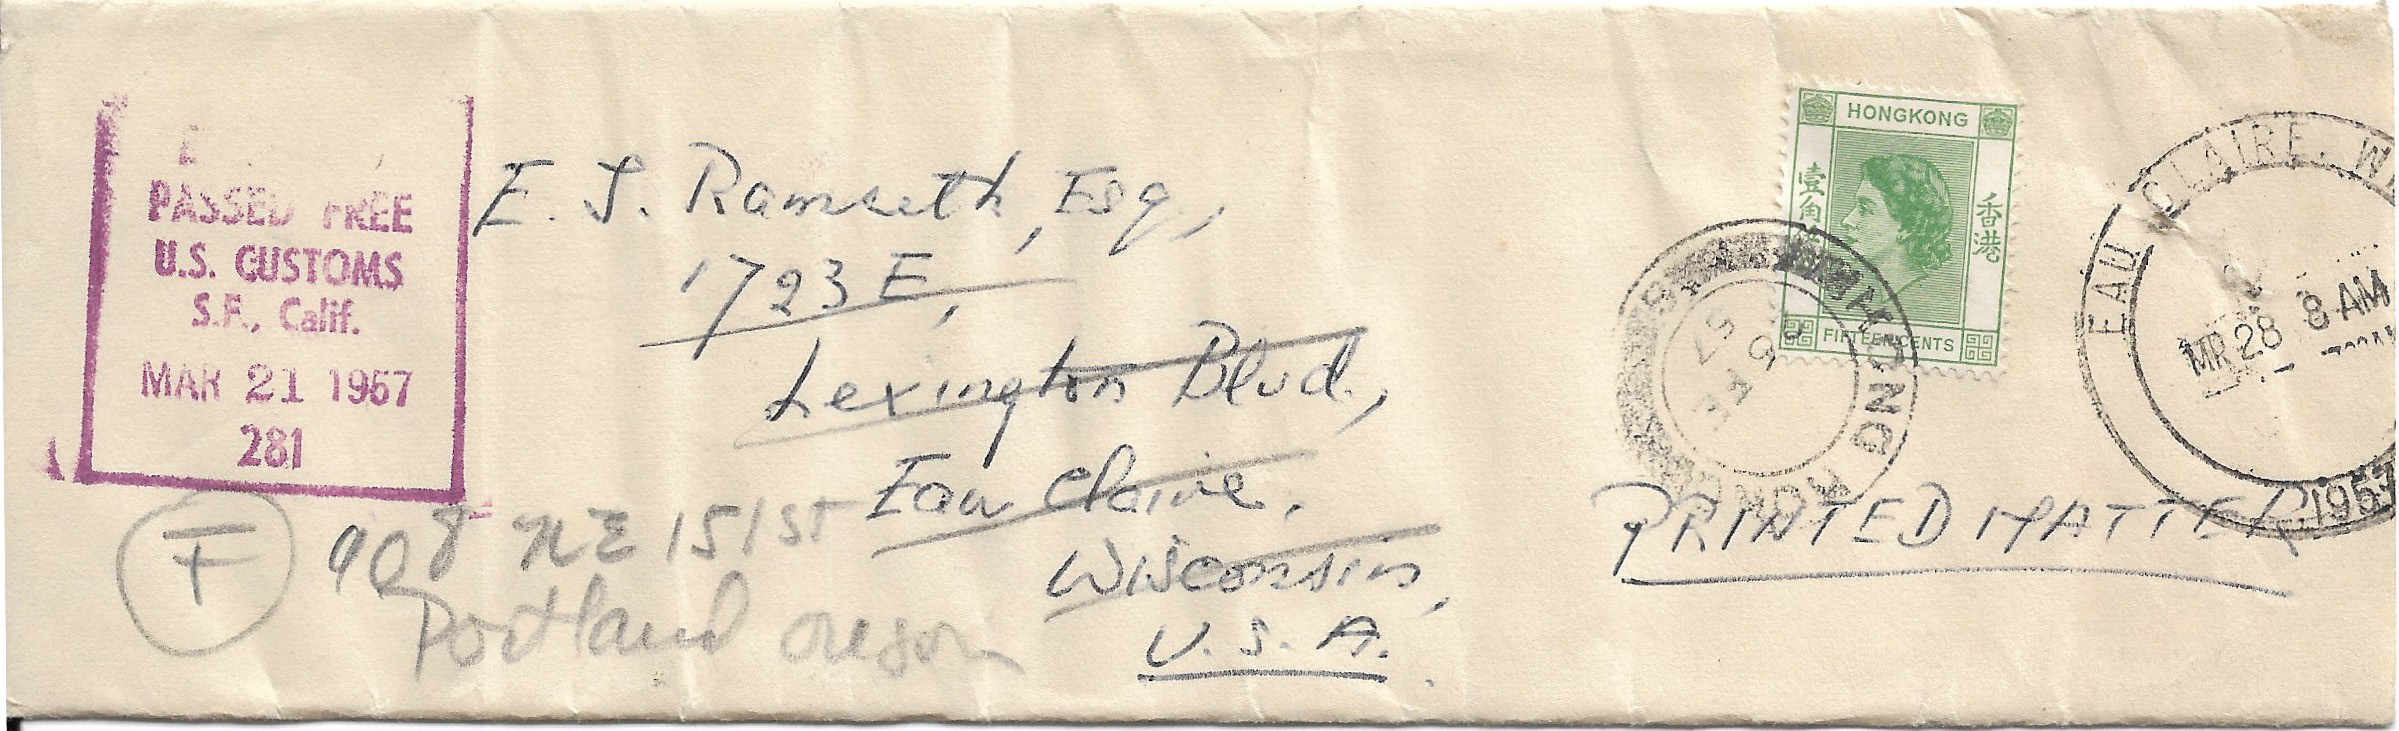 PASSED FREE
U.S. CUSTOMS
S.F., Calif.
MAR 21 1957
281
E. J. Ramseth, Esq.,
1723 E,
Lexington Blvd.,
Eau Claire,
Wisconsin,
U. S. A.
F
908 NE 151st
Portland Oregon
HONGKONG
壹角
香港
FIFTEEN CENTS
HONG KONG
6 FE
57
PRINTED MATTER
EAU CLAIRE, WI
MR 28 8 AM
1957